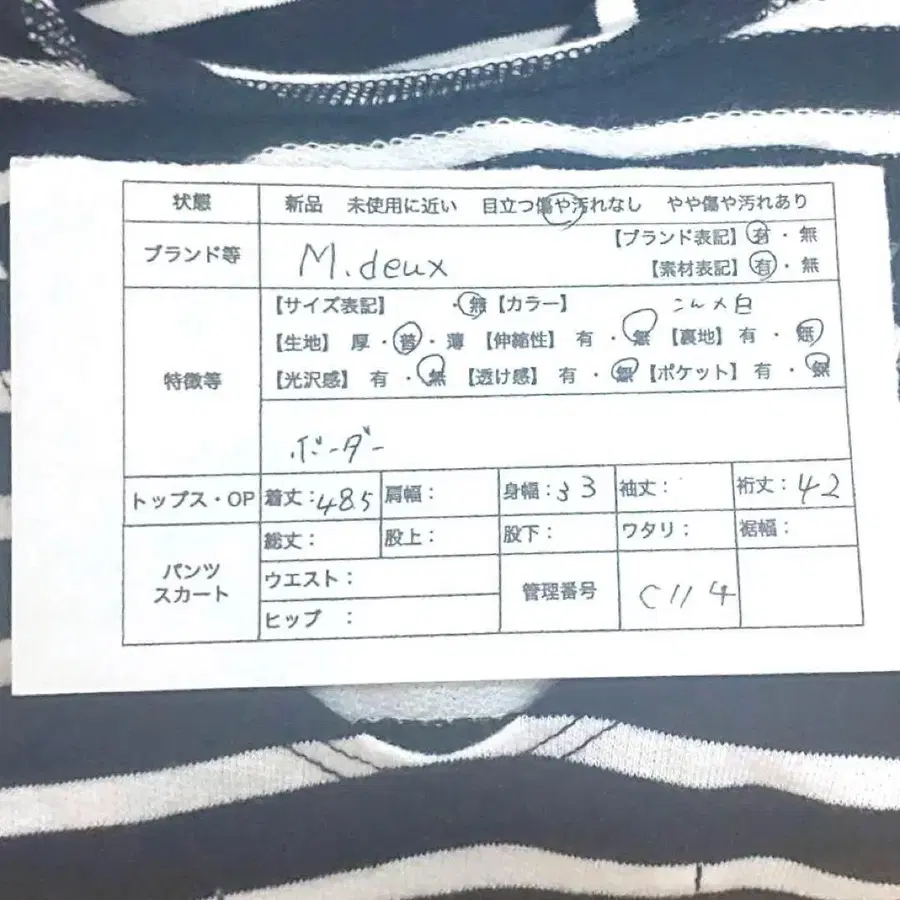 状態 新品 未使用に近い 目立つ傷や汚れなし やや傷や汚れあり
ブランド等 M.deux 【ブランド表記】 有・無
【素材表記】 有・無
特徴等
【サイズ表記】 ・無 【カラー】 こん×白
【生地】 厚・普・薄 【伸縮性】 有・無 【裏地】 有・無
【光沢感】 有・無 【透け感】 有・無 【ポケット】 有・無
ボーダー
トップス・OP 着丈:48.5 肩幅: 身幅:33 袖丈: 裄丈:42
パンツ スカート
総丈: 股上: 股下: ワタリ: 裾幅:
ウエスト: 管理番号 C114
ヒップ :